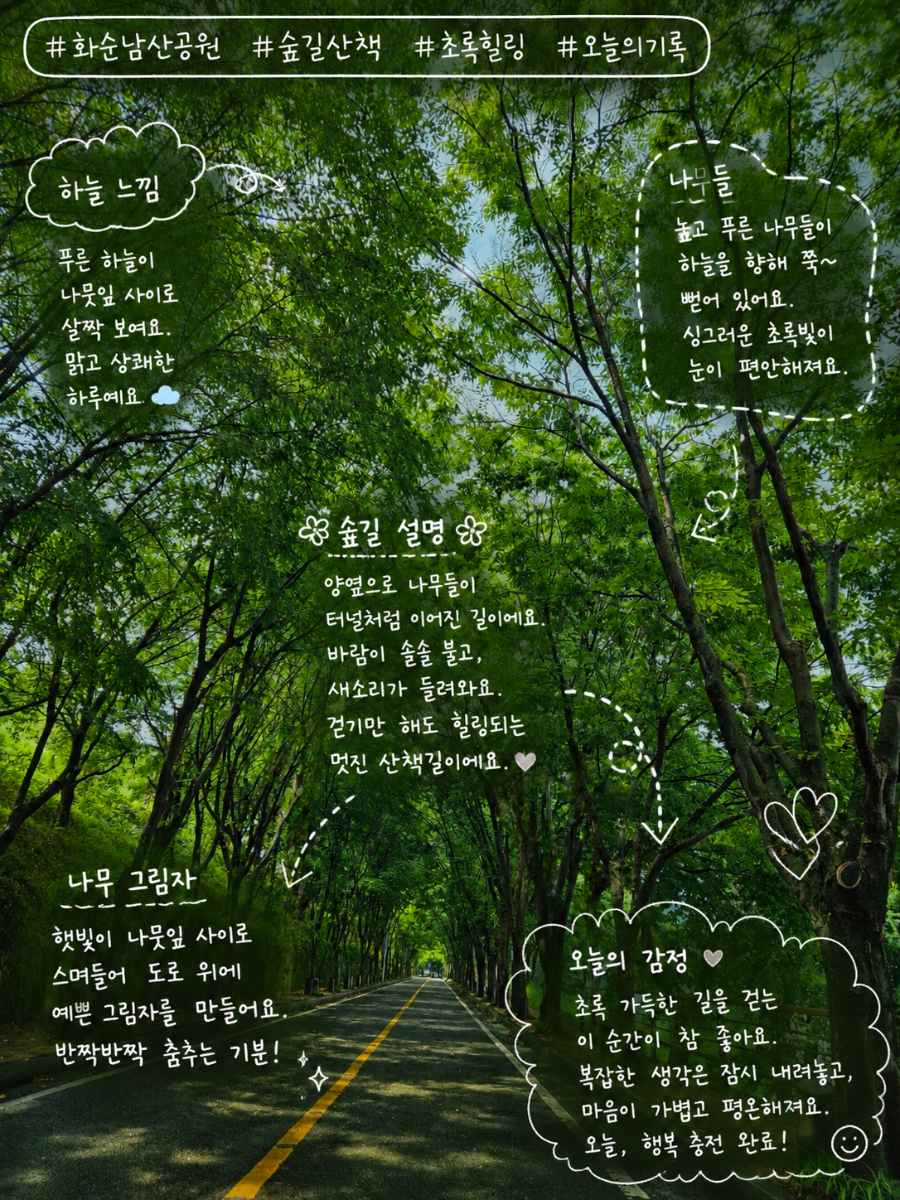 #화순남산공원 #숲길산책 #초록힐링 #오늘의기록
하늘 느낌
푸른 하늘이
나뭇잎 사이로
살짝 보여요.
맑고 상쾌한
하루예요.
나무들
높고 푸른 나무들이
하늘을 향해 쭉~
뻗어 있어요.
싱그러운 초록빛이
눈이 편안해져요.
숲길 설명
양옆으로 나무들이
터널처럼 이어진 길이에요.
바람이 솔솔 불고,
새소리가 들려와요.
걷기만 해도 힐링되는
멋진 산책길이에요.
나무 그림자
햇빛이 나뭇잎 사이로
스며들어 도로 위에
예쁜 그림자를 만들어요.
반짝반짝 춤추는 기분!
오늘의 감정
초록 가득한 길을 걷는
이 순간이 참 좋아요.
복잡한 생각은 잠시 내려놓고,
마음이 가볍고 평온해져요.
오늘, 행복 충전 완료!